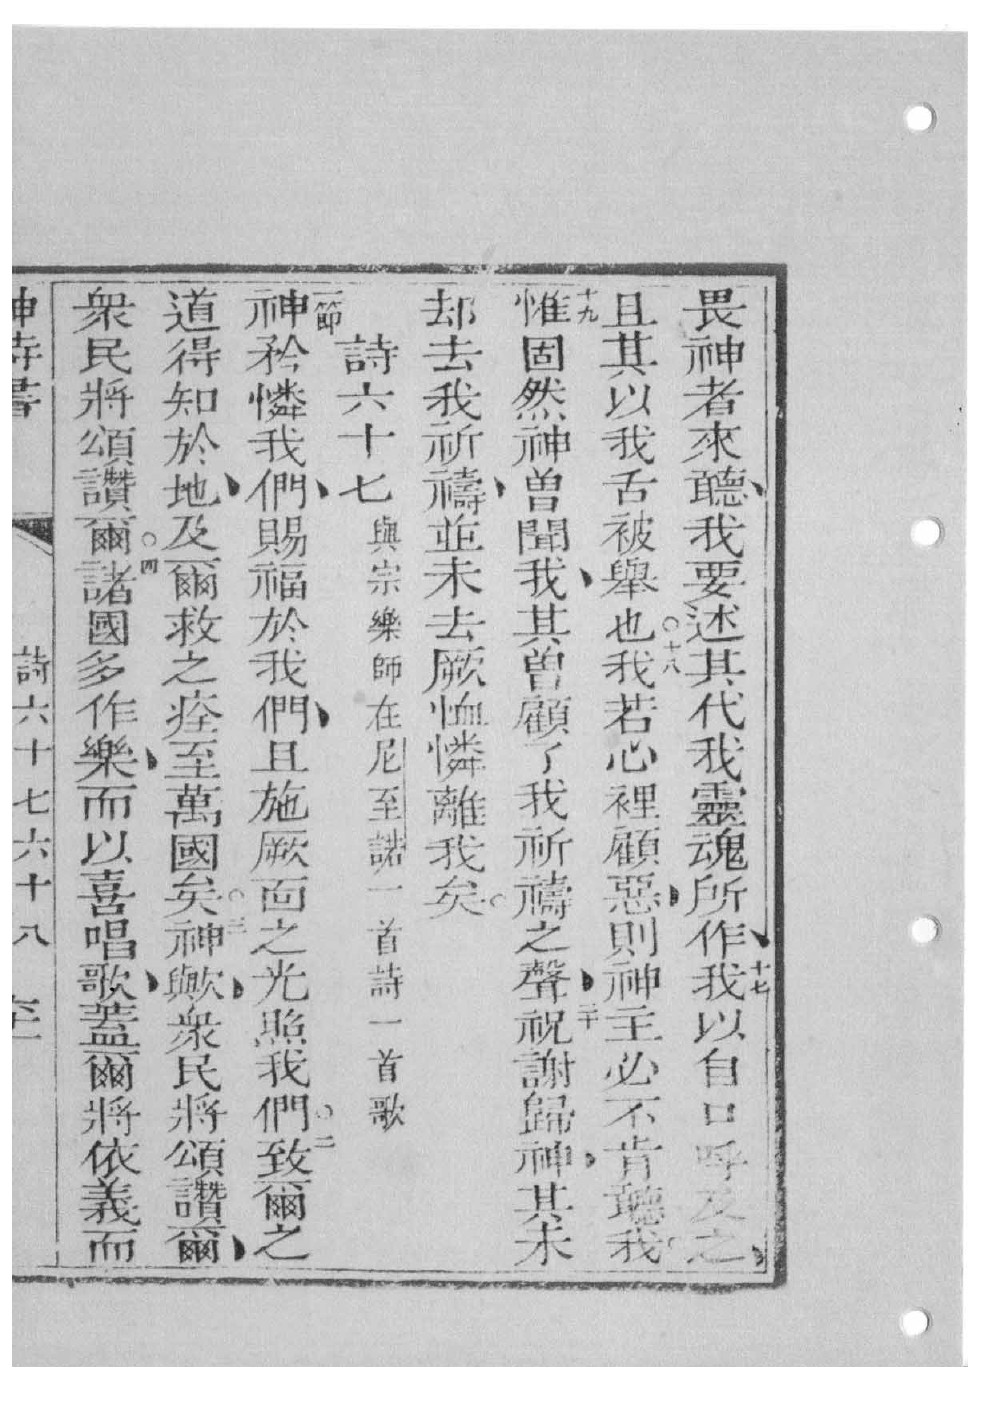 畏神者來聽、我要述其代我靈魂所作、十七我以自口呼及之、
且其以我舌被舉也○十八我若心裡顧惡、則神主必不肯聽我○
十九惟固然神曾聞我、其曾顧了我祈禱之聲、二十祝謝歸神、其未
却去我祈禱、並未去厥恤憐離我矣○
詩六十七 與宗樂師在尼至諾一首詩一首歌
一節神矜憐我們、賜福於我們、且施厥面之光照我們○二致爾之
道得知於地、及爾救之痊至萬國矣○三神歟、衆民將頌讚爾、
衆民將頌讚爾○四諸國多作樂、而以喜唱歌、蓋爾將依義而
神詩書 詩六十七六十八